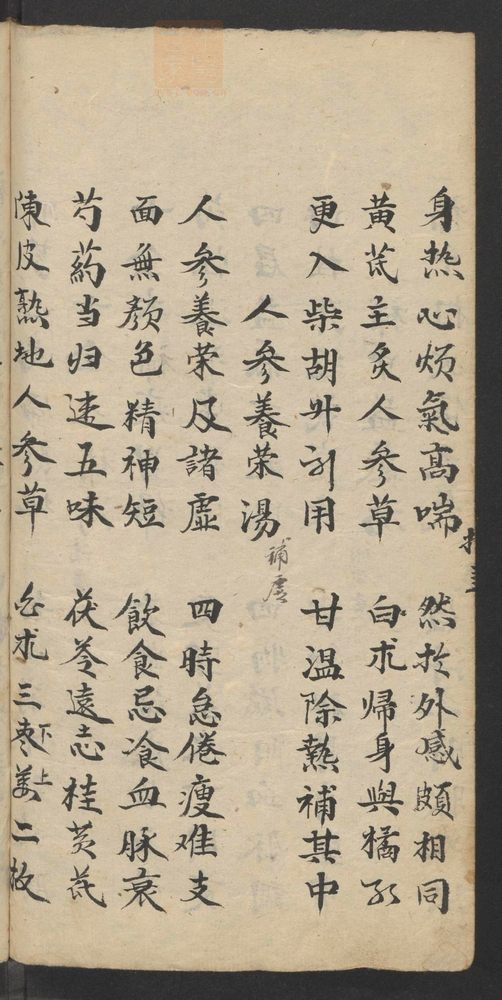 身热心烦氣髙喘 然於外感頗相同
黄芪主炙人參草 白术歸身與橘红
更入柴胡升引用 甘温除熱補其中
人參養荣湯 補虚
人參養荣及諸虚 四時怠倦瘦难支
面無顏色精神短 飲食忌飡血脉衰
芍药当归速五味 茯苓遠志桂黄芪
陳皮熟地人參草 白术三枣姜二枚
下上